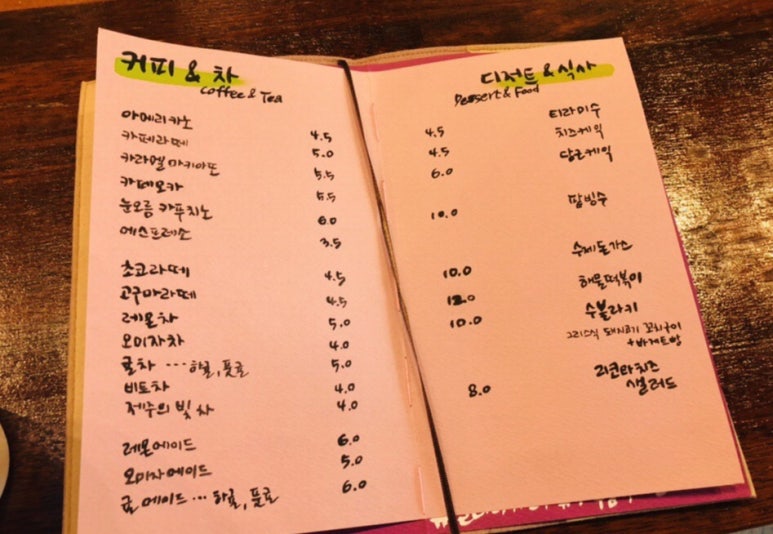 커피 & 차
Coffee & Tea
아메리카노 4.5
카페라떼 5.0
카라멜 마키아또 5.5
카페모카 5.5
눈오름 카푸치노 6.0
에스프레소 3.5
초코라떼 4.5
고구마라떼 4.5
레몬차 5.0
오미자차 4.0
귤차 ... 하귤, 풋귤 5.0
비트차 4.0
제주의 빛 차 4.0
레몬에이드 6.0
오미자에이드 5.0
귤에이드 ... 하귤, 풋귤 6.0
디저트 & 식사
Dessert & Food
4.5 티라미수
4.5 치즈케익
6.0 당근케익
10.0 팥빙수
10.0 수제돈가스
12.0 해물떡볶이
10.0 수블라키
그리스식 돼지고기 꼬치구이
+ 바게트빵
8.0 리코타치즈
샐러드